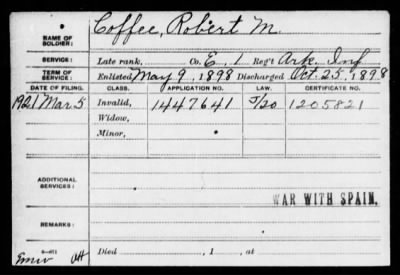 NAME OF SOLDIER: Coffee, Robert M.
SERVICE: Late rank, Co. E, 1 Reg't Ark. Inf
TERM OF SERVICE: Enlisted May 9, 1898 Discharged Oct. 25, 1898
DATE OF FILING. CLASS. APPLICATION NO. LAW. CERTIFICATE NO.
1921 Mar. 5 Invalid, 1447641 5/20 1205821
Widow,
Minor,
ADDITIONAL SERVICES:
WAR WITH SPAIN.
REMARKS:
Died , 1 , at